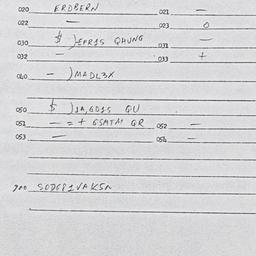 020 ERDBERN 021 —
022 — 023 0
030 $ )EFR1S QHUNG 031 —
032 — 033 +
040 — )MADL3X
050 $ )1A,6D1S QU
051 — = + GSMTAI QR 052 —
053 — 054 —
700 SODER1VAKSN